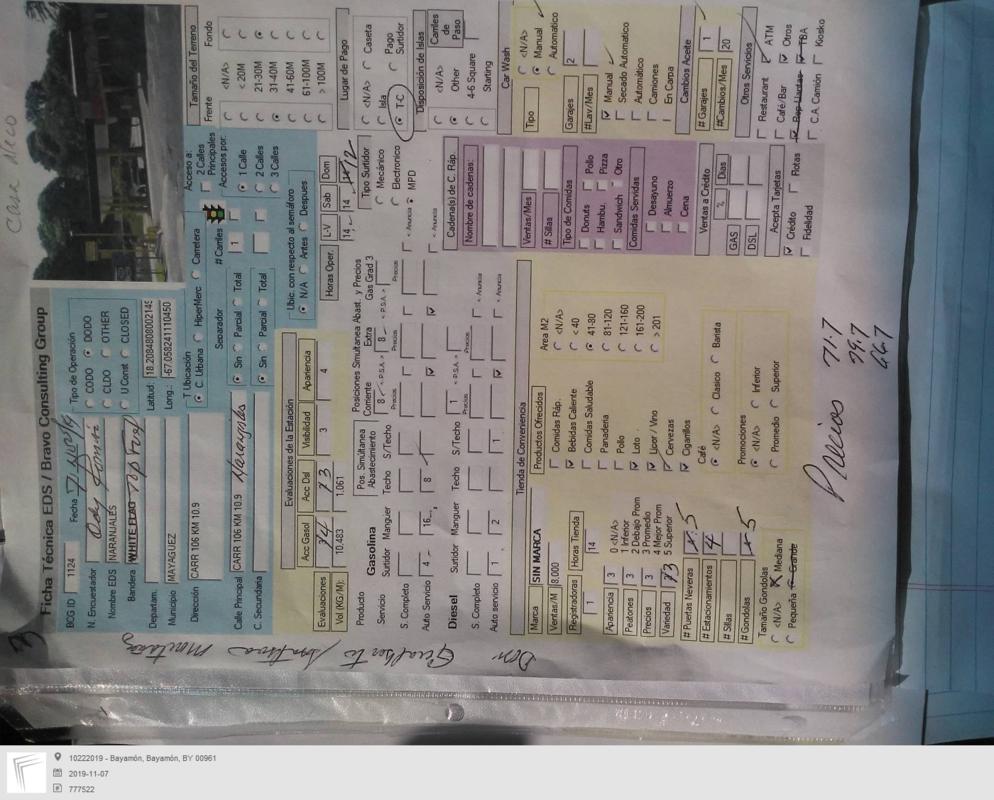 Ficha Técnica EDS / Bravo Consulting Group
BCG ID 1124 Fecha
N. Encuestador
Nombre EDS NARANJALES
Bandera WHITE FLAG
Departam.
Municipio MAYAGUEZ
Dirección CARR 106 KM 10.9
Calle Principal CARR 106 KM 10.9
C. Secundaria
Tipo de Operación
CODO DODO
CLDO OTHER
U Const CLOSED
Latitud: 18.208480800214
Long.: -67.058241110450
T Ubicación
C. Urbana HiperMerc Carretera
Separador # Carriles
Sin Parcial Total 1
Sin Parcial Total
Acceso a:
2 Calles Principales
Accesos por:
1 Calle
2 Calles
3 Calles
Ubic. con respecto al semáforo
N/A Antes Despues
Tamaño del Terreno
Frente Fondo
<N/A>
< 20M
21-30M
31-40M
41-60M
61-100M
> 100M
Evaluaciones de la Estación
Evaluaciones Acc Gasol Acc Del Visibilidad Apariencia
3 4
Vol (KG/M): 10,483 1,061
Horas Oper. L-V Sab Dom
14 14
Lugar de Pago
<N/A> Caseta
Isla Pago Surtidor
T-C
Producto Gasolina Pos Simultanea Abastecimiento Posiciones Simultanea Abast. y Precios
Corriente Extra Gas Grad 3
Servicio Surtidor Manguer Techo S/Techo 8 8
S. Completo Precios Precios Precios
Auto Servicio 4 16 8
Tipo Surtidor
Mecánico
Electronico
MPD
Disposición de Islas
<N/A>
Other
4-6 Square
Starting
Carriles de Paso
Diesel Surtidor Manguer Techo S/Techo 1
S. Completo
Auto servicio 1 2 1
Tienda de Conveniencia
Marca SIN MARCA
Ventas/M 8.000
Registradoras Horas Tienda
1 14
Apariencia 3
Peatones 3
Precios 3
Variedad
0 <N/A>
1 Inferior
2 Debajo Prom
3 Promedio
4 Mejor Prom
5 Superior
# Puertas Neveras 5
# Estacionamientos 4
# Sillas
# Gondolas 5
Tamaño Gondolas
<N/A> Mediana
Pequeña Grande
Productos Ofrecidos
Comidas Ráp.
Bebidas Caliente
Comidas Saludable
Panaderia
Pollo
Loto
Licor / Vino
Cervezas
Cigarrillos
Area M2
<N/A>
< 40
41-80
81-120
121-160
161-200
> 201
Café
<N/A> Clasico Barista
Promociones
<N/A> Inferior
Promedio Superior
Cadena(s) de C. Ráp.
Nombre de cadenas:
Ventas/Mes
# Sillas
Tipo de Comidas
Donuts Pollo
Hambu. Pizza
Sandwich Otro
Comidas Servidas
Desayuno
Almuerzo
Cena
Car Wash
Tipo <N/A>
Manual
Automatico
Garajes 2
#Lav/Mes
Manual
Secado Automatico
Automático
Camiones
En Carpa
Ventas a Crédito
% Dias
GAS
DSL
Cambios Aceite
# Garajes 1
#Cambios/Mes 20
Acepta Tarjetas
Crédito Flotas
Fidelidad
Otros Servicios
Restaurant ATM
Café/Bar Otros
Rep Llantas TBA
C.A. Camión Kiosko
Precios 71.7
79.7
66.7
10222019 - Bayamón, Bayamón, BY 00961
2019-11-07
777522